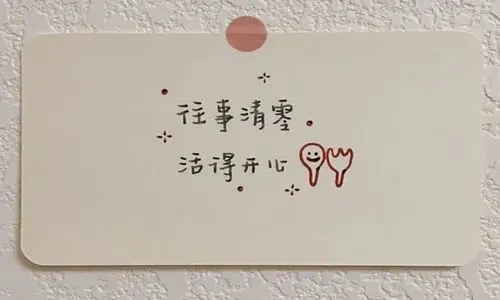 往事清零
活得开心